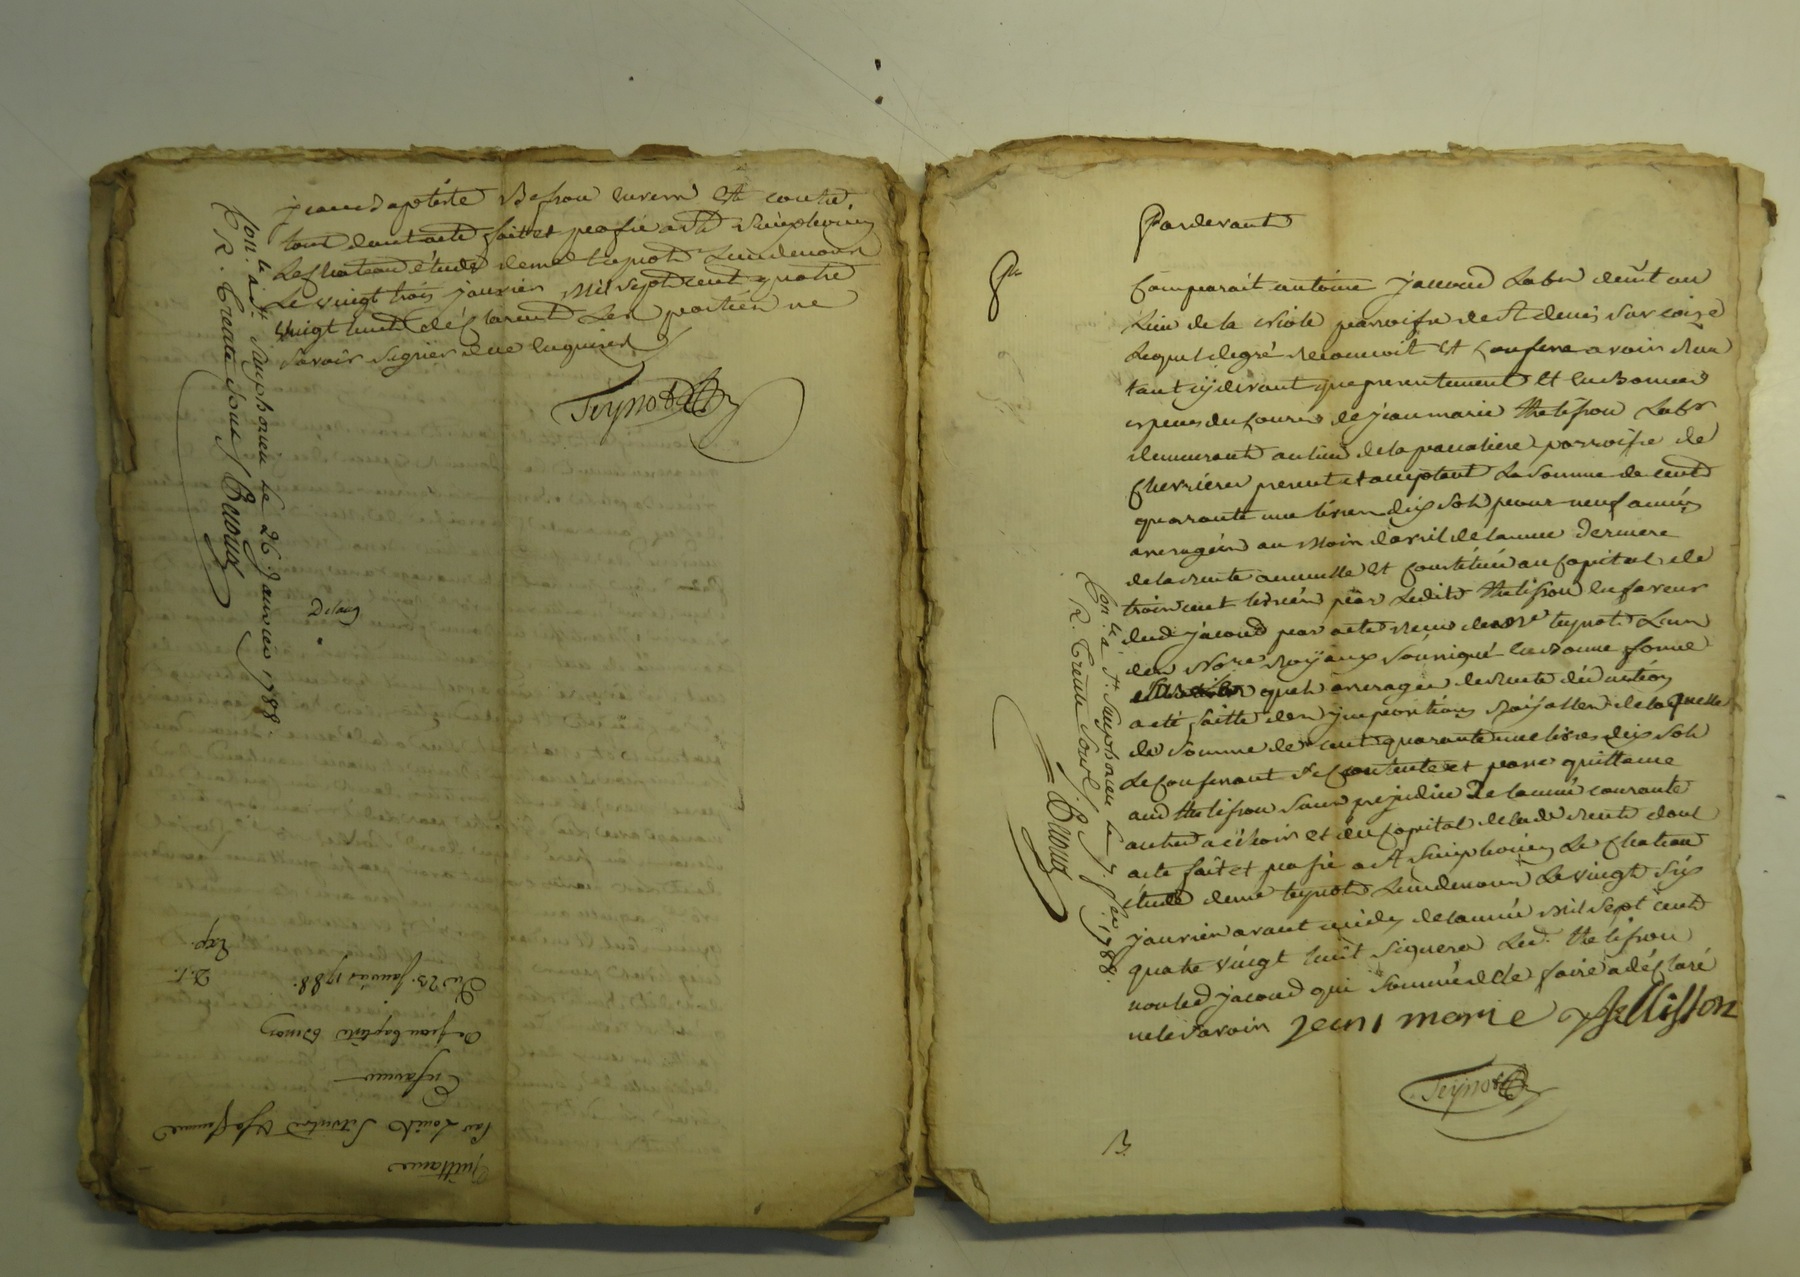 jean Baptiste Besson enven et contre
tous dont acte fait et passé a St Simphorien
Le Chateau étude deme teynot Lundenous
Le vingt trois janvier Mil sept cent quatre
vingt huit déclarent Les parties ne
savoir signer de ce enquises
Teynot
Con.lé a St Simphorien Le 26 Janvier 1788.
R. Trente sous
Quittance
Par Louis et sa femme
De jean baptiste Besson
Du 23. Janvier 1788.
Exp.
Pardevant
Comparait antoine jacoud Labr deũt au
Lieu de la paroisse de St denis sur coise
Lequel de gré reconnoit et confesse avoir reçu
tant cÿdevant que presentement et en bonnes
especes du cours de jean marie thelisson Labr
demeurant au lieu de la paroisse de
Chevrieres present et acceptant La somme de cent
quarante une livres dix sols pour neuf années
arrerages au mois davril de lannée derniere
de la rente annuelle et constituée au capital de
trois cent livres par Ledit thelisson en faveur
dud jacoud par acte reçu de me teynot Lun
des Nores Royaux soussigné en bonne forme
quels arrerages de rente déduction
a eté faitte des impositions Royalles de laquelle
de somme de cent quarante une livres dix sols
Le confessant se contente et passe quittance
aud thelisson sans prejudice De lannée courante
autres a échoir et du Capital de lade rente dont
acte fait et passé a St Simphorien Le Chateau
étude deme teynot Lundenous Le vingt six
janvier avant midy de lannée Mil sept cent
quatre vingt huit signera Led. thelisson
non led jacoud qui sommé de ce faire a déclaré
ne le savoir jean marie thellisson
Teynot
Con.lé a St Simphorien Le 7 fer. 1788.
R. Trente sous
B.